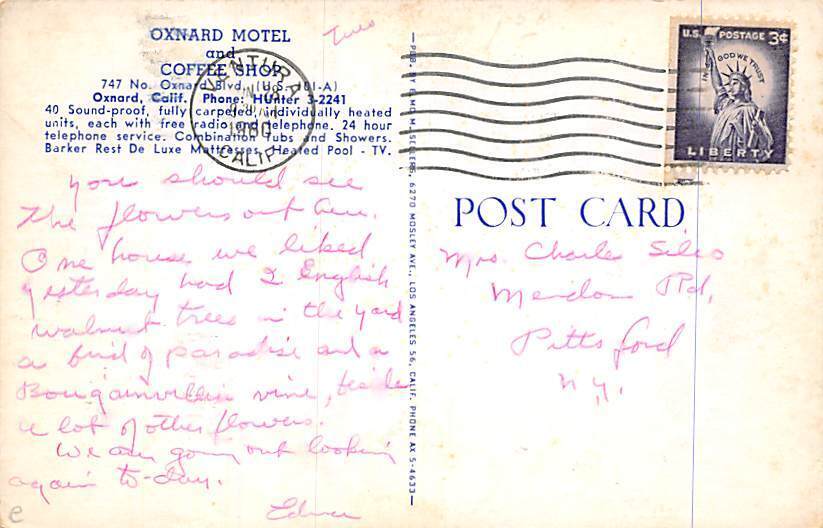 OXNARD MOTEL
and
COFFEE SHOP
747 No. Oxnard Blvd. (U.S. 101-A)
Oxnard, Calif. Phone: HUnter 3-2241
40 Sound-proof, fully carpeted, individually heated
units, each with free radio and telephone. 24 hour
telephone service. Combination Tubs and Showers.
Barker Rest De Luxe Mattresses. Heated Pool - TV.
Tues
VENTURA
CALIF.
you should see
the flowers out here.
One house we liked
yesterday had 2 English
walnut trees in the yard
a bird of paradise and a
Bougainvillea vine, beside
a lot of other flowers.
We are going out looking
again to-day.
Edna
PUB. BY ELMO M. SELLERS, 6270 MOSLEY AVE., LOS ANGELES 56, CALIF. PHONE AX 5-4633
U.S. POSTAGE 3¢
IN GOD WE TRUST
LIBERTY
POST CARD
Mrs. Charles Silco
Mendon Rd,
Pittsford
N.Y.
e